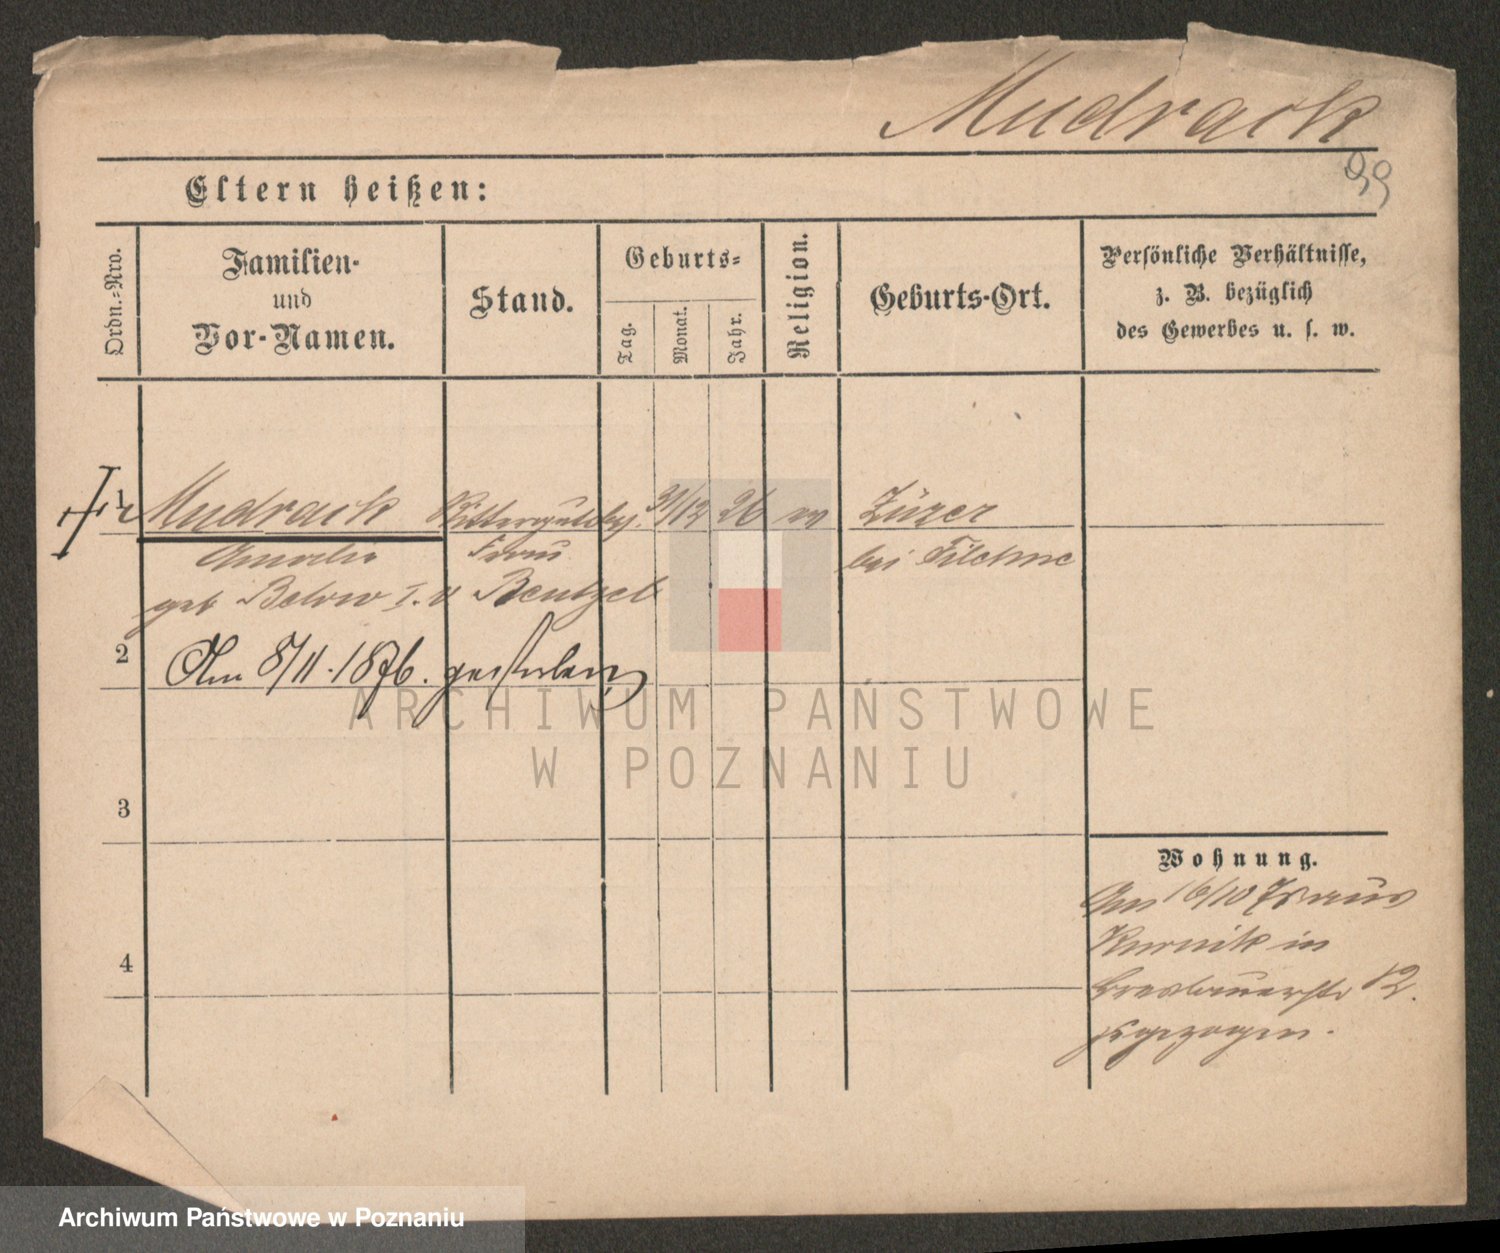 Mudrack
99
Eltern heißen:
Ordn.-Nro.
Familien-
und
Vor-Namen.
Stand.
Geburts-
Tag.
Monat.
Jahr.
Religion.
Geburts-Ort.
Persönliche Verhältnisse,
z. B. bezüglich
des Gewerbes u. s. w.
1 Mudrack Rittergutsbes. 31/12 26 ev Züzer
Amalie Frau bei Filehne
geb Below I. v Bentzel
2 Am 8/11.1876. gestorben
3
4
Wohnung.
Am 16/10 73 aus
Kurnik in
Breslauerstr 12.
zugezogen.
ARCHIWUM PAŃSTWOWE
W POZNANIU
Archiwum Państwowe w Poznaniu